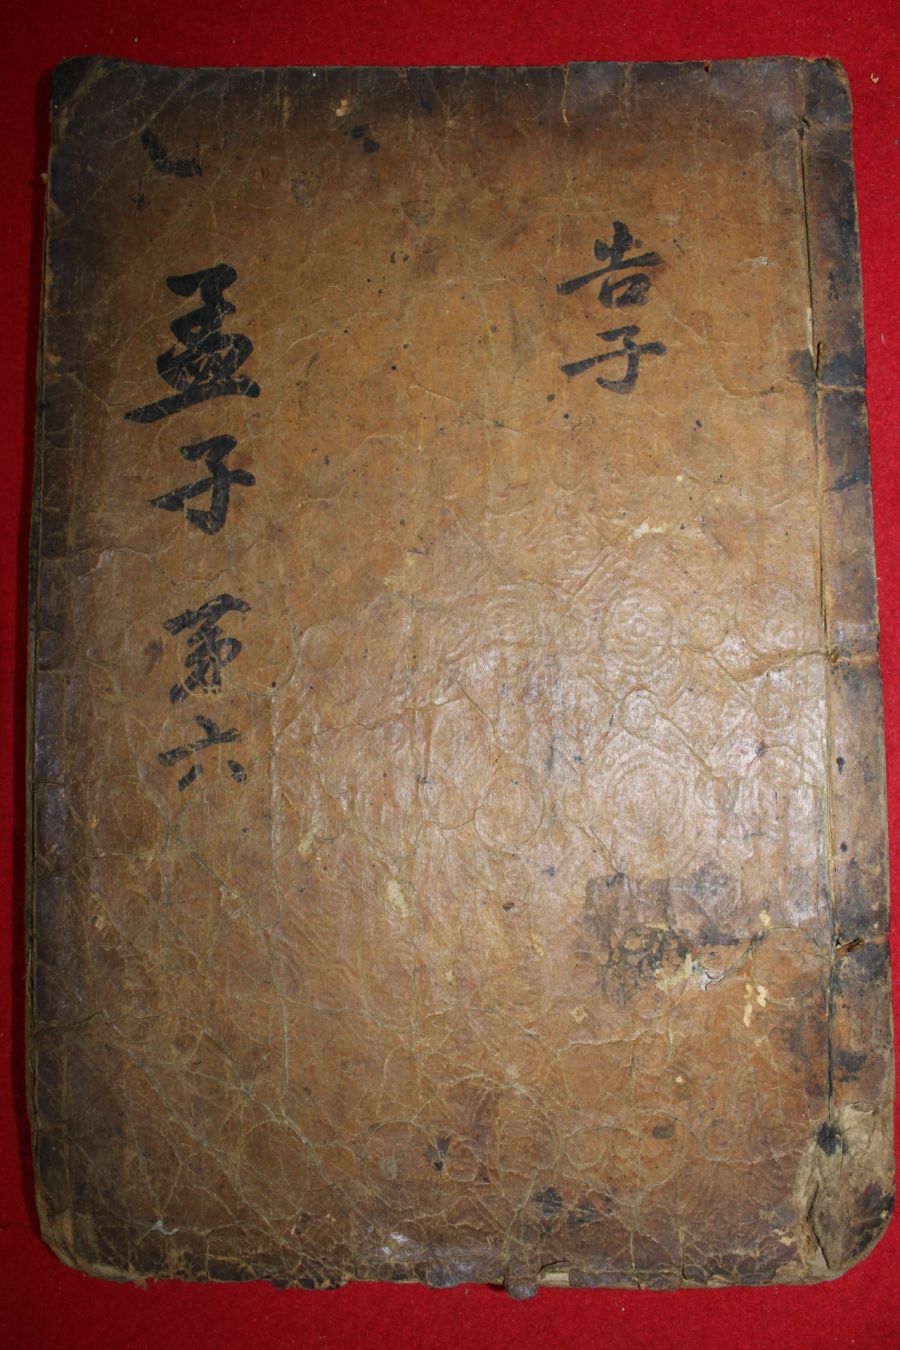 告子
孟子 第六